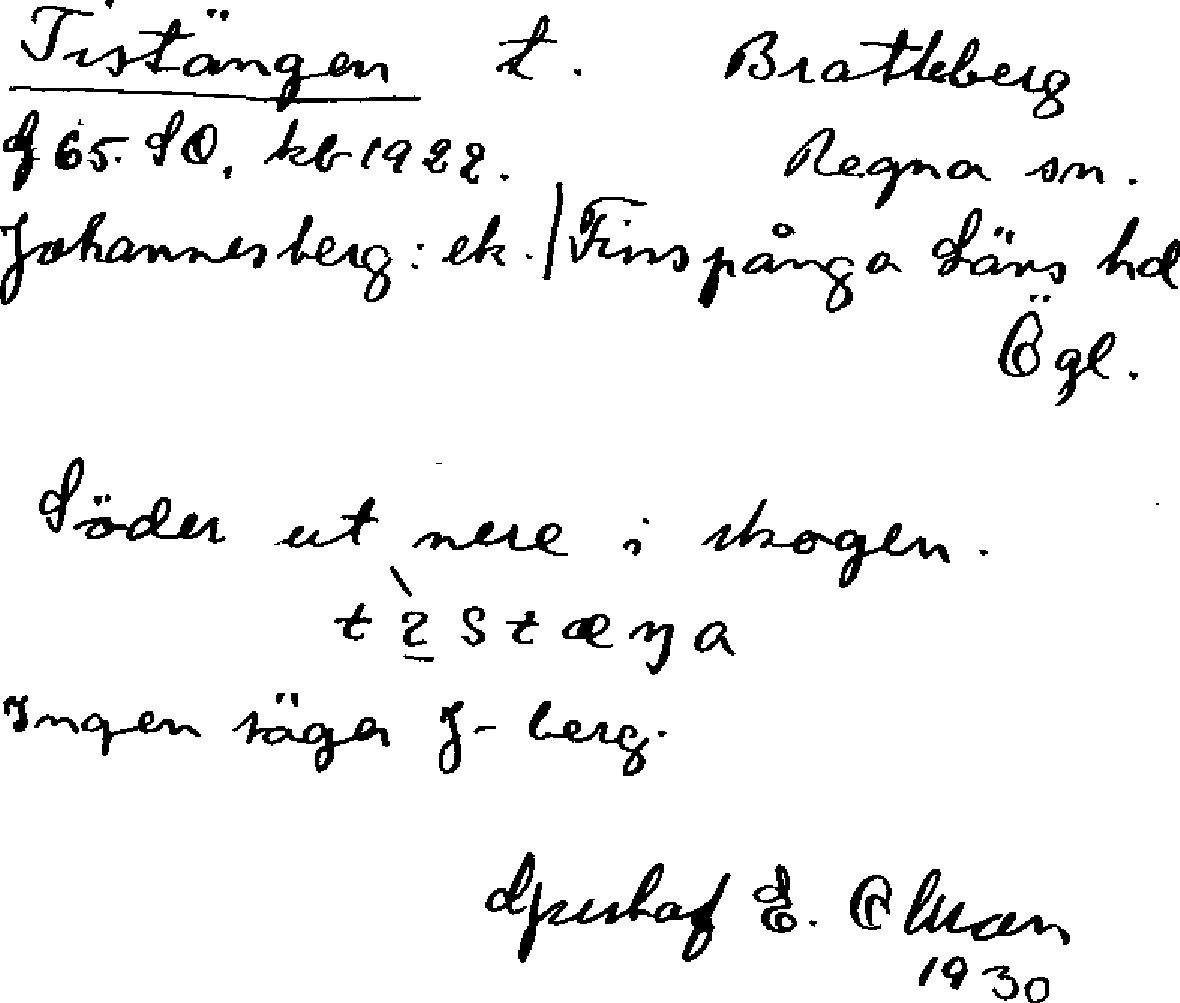 Tistängen t. Bratteberg
J 65. SO. kb 1922. Regna sn.
Johannesberg: ek. / Finspånga Läns hd
Ögl.
Söder ut nere i skogen.
t 2 S t æ ŋ a
Ingen säger J-berg.
Gustaf E. Olsson
1930